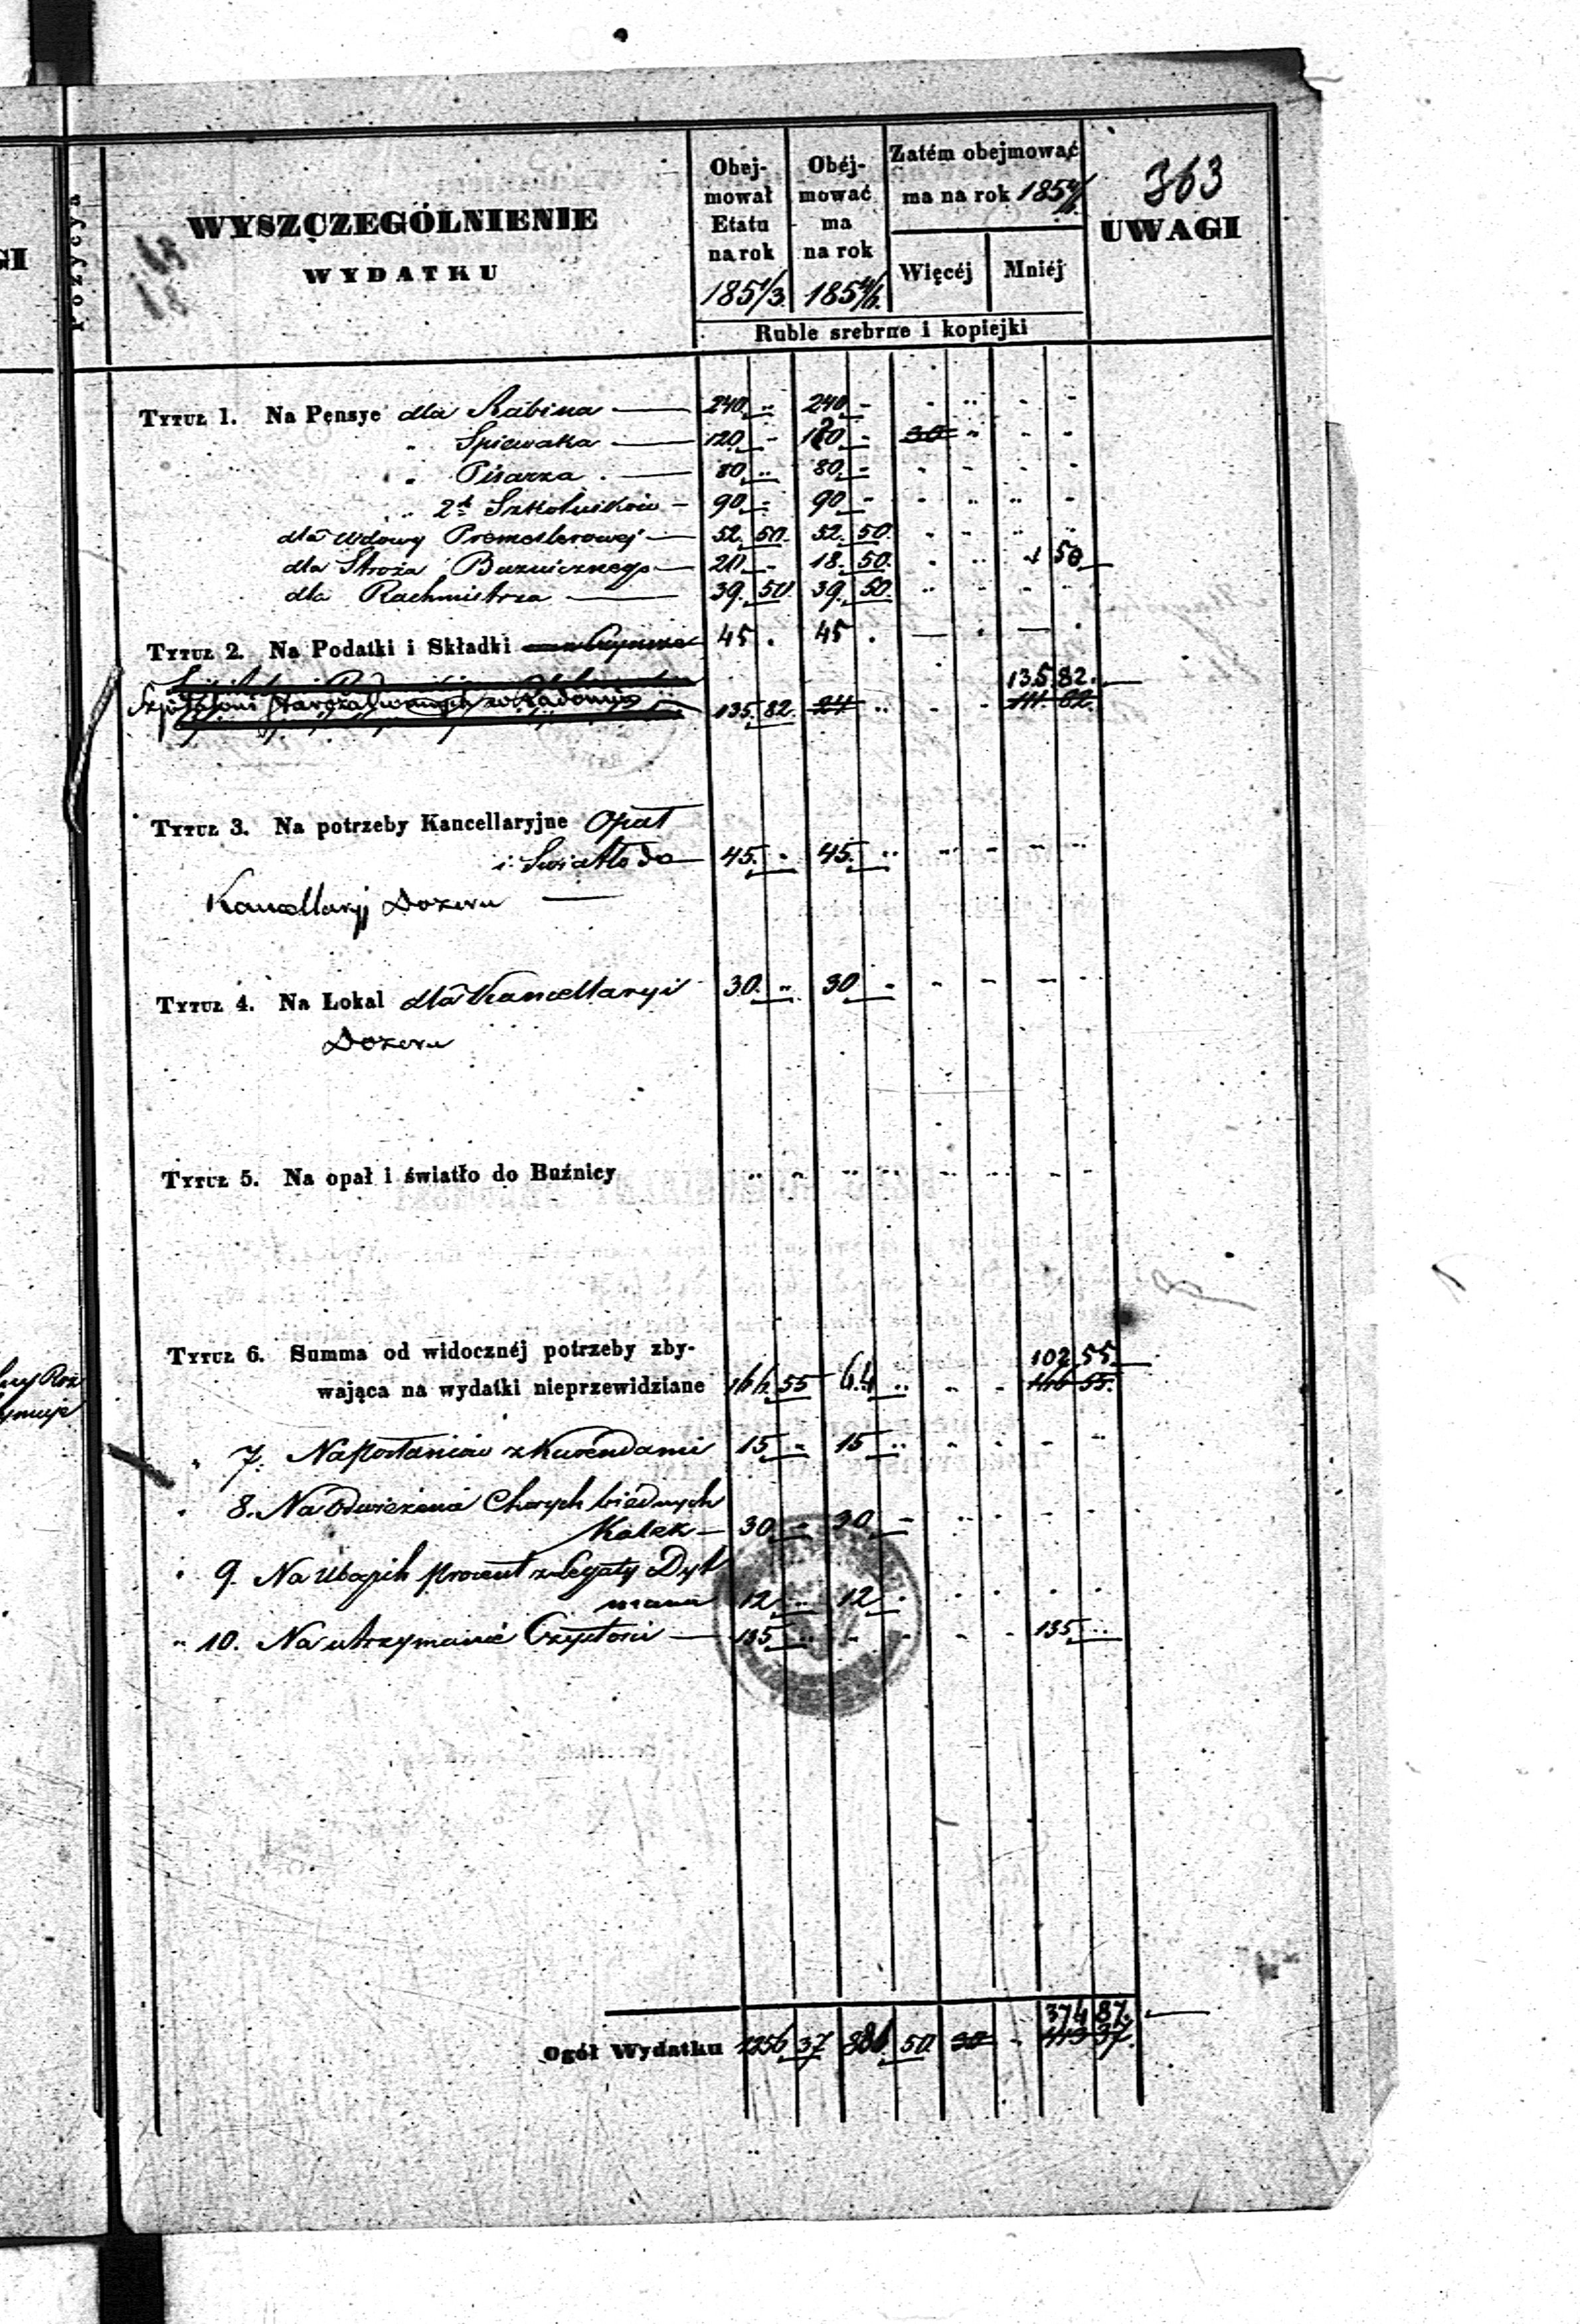 363
Pozycya
WYSZCZEGÓLNIENIE
WYDATKU
Obej-
mował
Etatu
na rok
1851/3.
Obéj-
mować
ma
na rok
1854/6.
Zatém obejmować
ma na rok 1854/6.
Więcéj
Mniéj
UWAGI
Ruble srebrne i kopiejki
Tytuł 1. Na Pensye dla Rabina — 240 .. 240 -
" Spiewaka — 120 - 120 - 30 "
" Pisarza — 80 .. 80 -
" 2ch Szkolników - 90 - 90 -
dla Wdowy Premeslerowej — 52. 50. 52. 50.
dla Stroża Buznicznego — 20 - 18. 50. 1 50
dla Rachmistrza — 39. 50 39. 50.
Tytuł 2. Na Podatki i Składki 45 . 45 .
135 82.
w Radomiu 135. 82. 24 .. 111 82.
Tytuł 3. Na potrzeby Kancellaryjne Opał
i Swiatło do — 45. - 45. ..
Kancellaryj Dozoru —
Tytuł 4. Na Lokal dla Kancellaryi 30. .. 30 -
Dozoru
Tytuł 5. Na opał i światło do Buźnicy
Tytuł 6. Summa od widocznéj potrzeby zby-
102 55
wająca na wydatki nieprzewidziane 166 55 64 .. 116 55.
" 7. Na posłańców z Kurendami 15 - 15 ..
" 8. Na Odwiezenie Chorych biednych
Kalek — 30 - 30 -
" 9. Na procent z Legaty Dyt
mana 12 .. 12 -
" 10. Na utrzymanie Czystości — 135 .. 135 ..
374 87.
Ogół Wydatku 1256 37 881. 50 30 - 413 37.